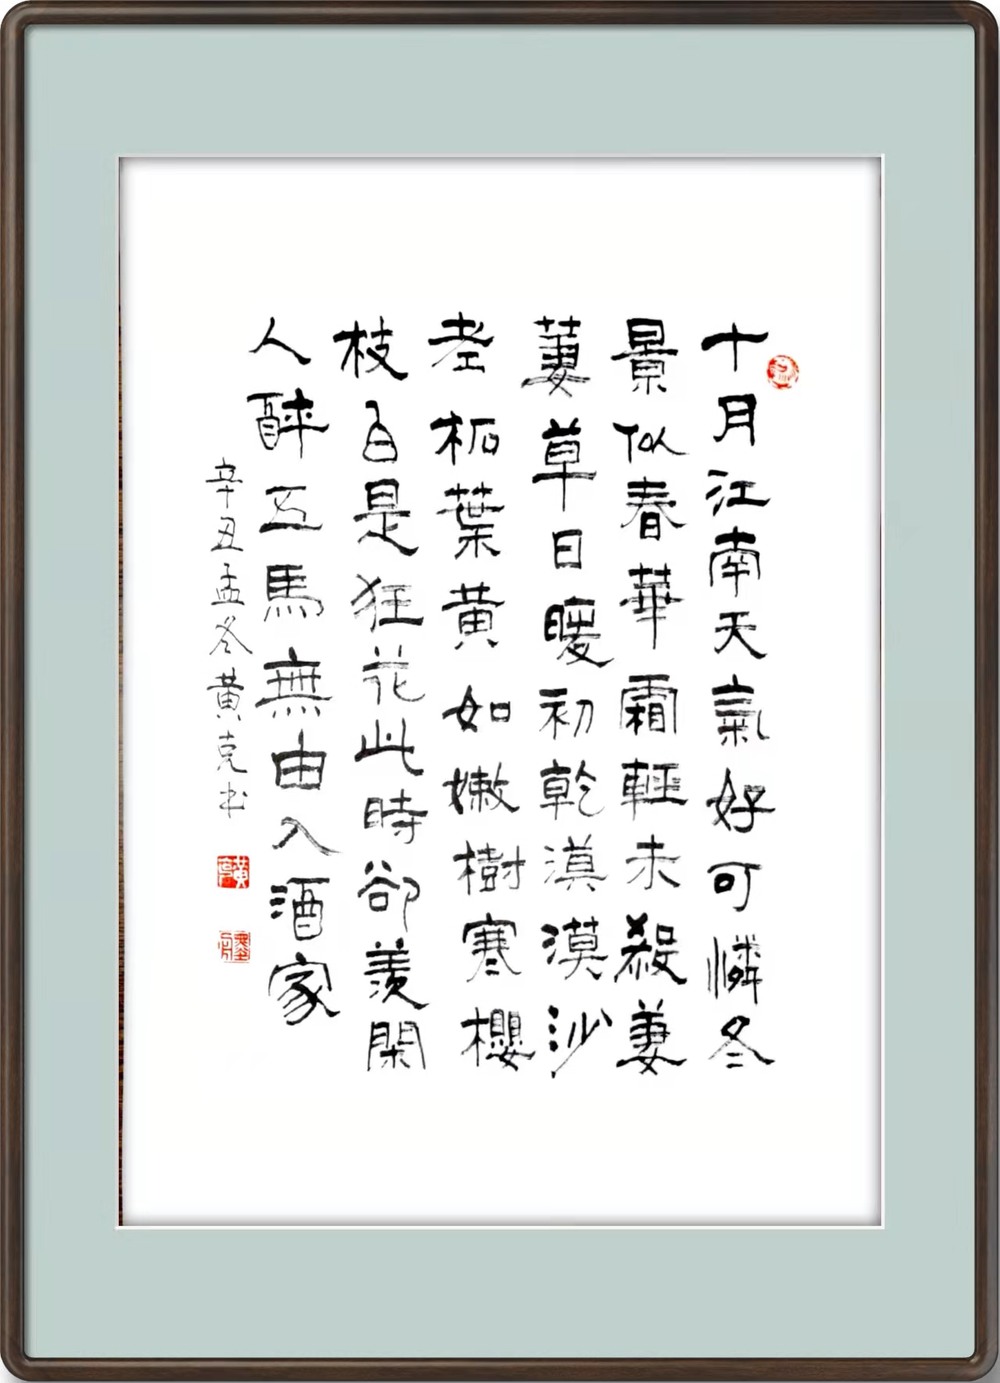 十月江南天氣好可憐冬
景似春華霜輕未殺萋
萋草日暖初乾漠漠沙
老柘葉黄如嫩樹寒櫻
枝白是狂花此時卻羨閑
人醉五馬無由入酒家
辛丑孟冬黄克书